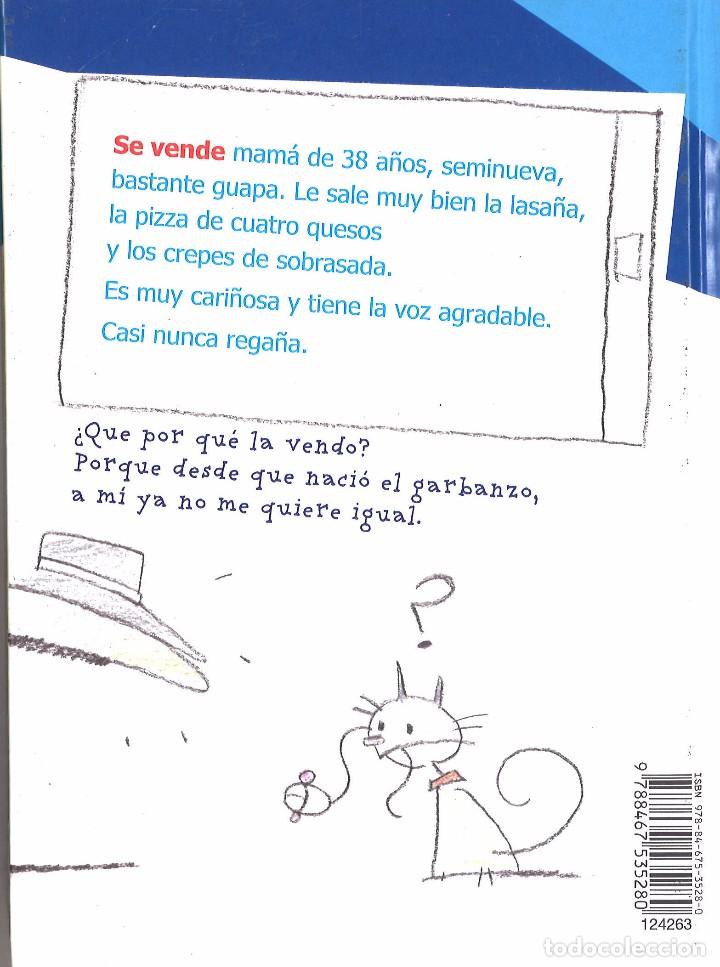 Se vende mamá de 38 años, seminueva,
bastante guapa. Le sale muy bien la lasaña,
la pizza de cuatro quesos
y los crepes de sobrasada.
Es muy cariñosa y tiene la voz agradable.
Casi nunca regaña.
¿Que por qué la vendo?
Porque desde que nació el garbanzo,
a mí ya no me quiere igual.
?
ISBN 978-84-675-3528-0
9 788467 535280
124263
todocoleccion